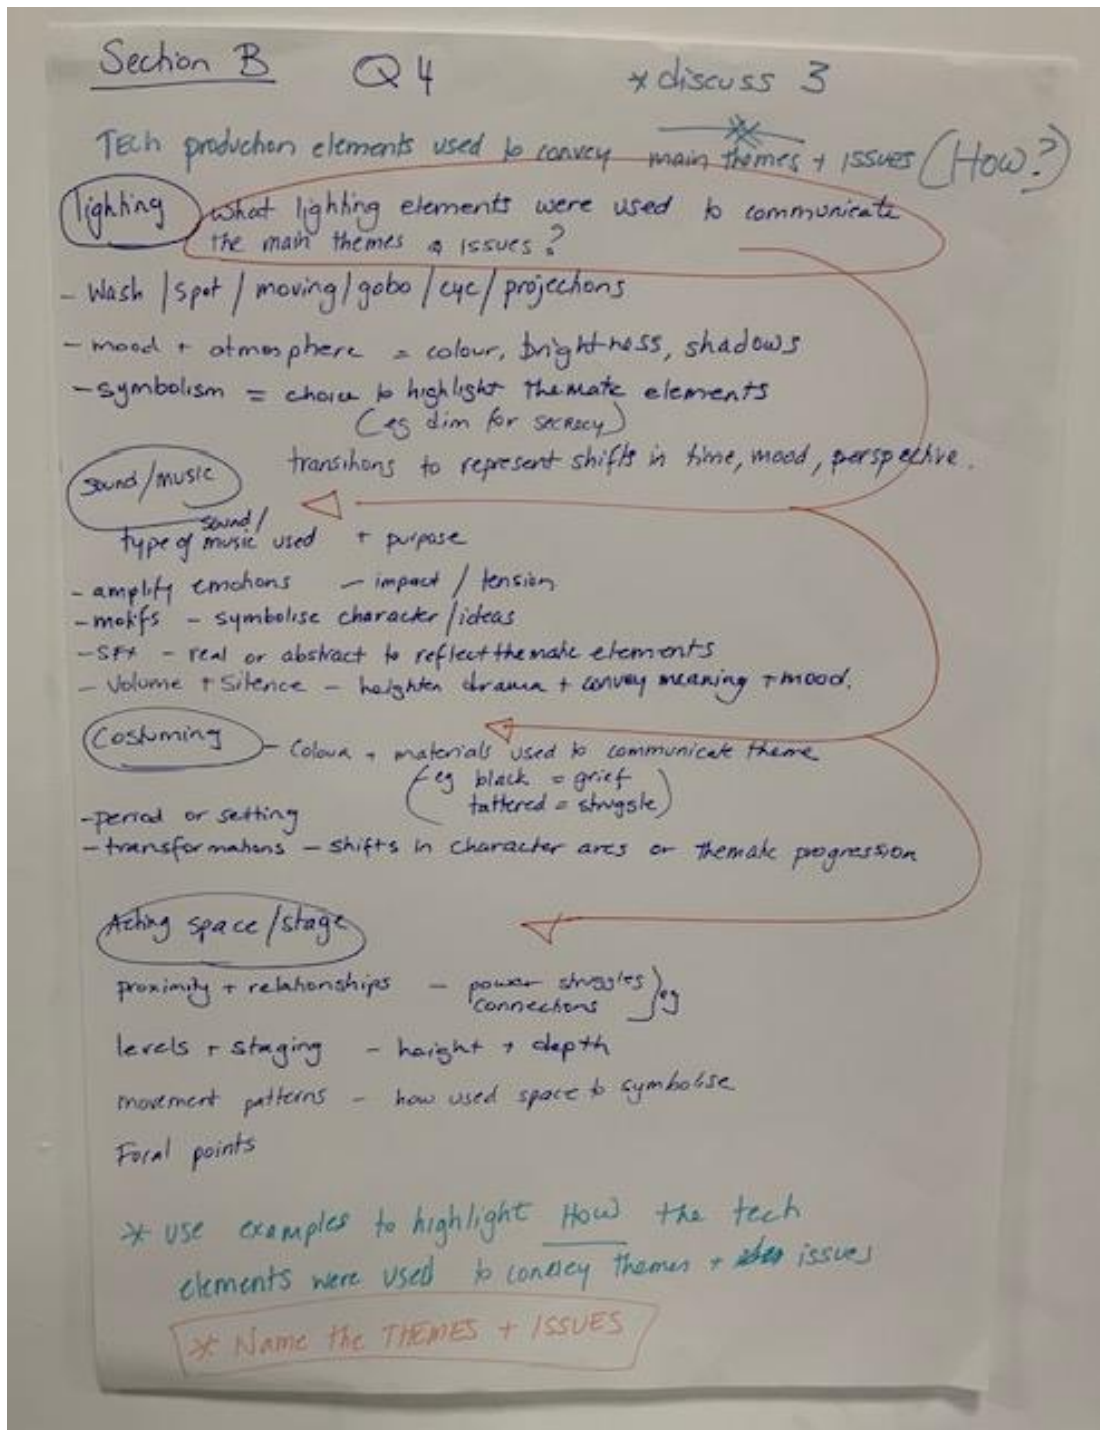 Section B Q4 * discuss 3
Tech production elements used to convey main themes + issues (How?)
lighting what lighting elements were used to communicate
the main themes & issues?
- Wash / spot / moving / gobo / cyc / projections
- mood + atmosphere = colour, brightness, shadows
- symbolism = choice to highlight thematic elements
(eg dim for secrecy)
transitions to represent shifts in time, mood, perspective.
Sound/music
sound/
type of music used + purpose
- amplify emotions - impact / tension
- motifs - symbolise character / ideas
- SFX - real or abstract to reflect thematic elements
- Volume + Silence - heighten drama + convey meaning + mood.
Costuming - Colour + materials used to communicate theme
(eg black = grief
tattered = struggle)
- period or setting
- transformations - shifts in character arcs or thematic progression
Acting space/stage
proximity + relationships - power struggles
connections } eg
levels + staging - height + depth
movement patterns - how used space to symbolise
Focal points
* Use examples to highlight How the tech
elements were used to convey themes + issues
* Name the THEMES + ISSUES